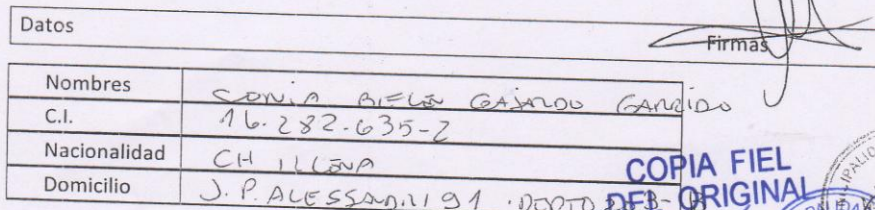 Datos
Firmas
Nombres SONIA BELÉN GAJARDO GARRIDO
C.I. 16.282.635-2
Nacionalidad CHILLENA
Domicilio J. P. ALESSANDRI 91 DEPTO
COPIA FIEL
DEL ORIGINAL